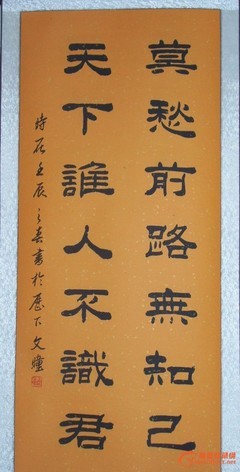 莫愁前路無知己
天下誰人不識君
時在壬辰之春書於歷下文瞳